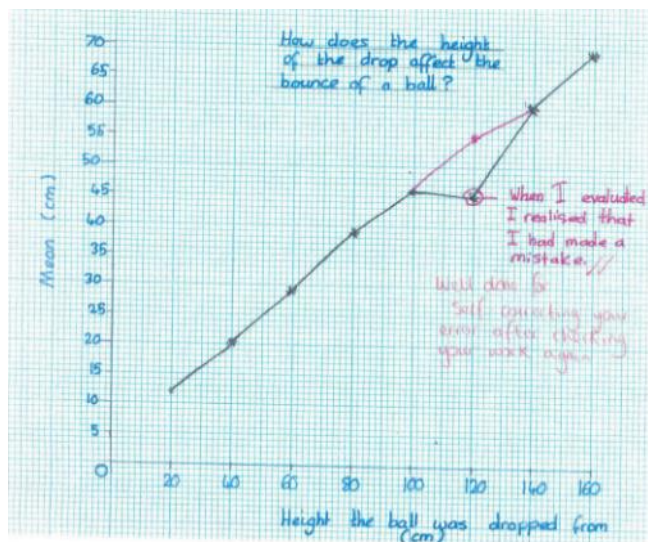 How does the height
of the drop affect the
bounce of a ball?
70
65
60
55
50
45
40
35
30
25
20
15
10
5
0
Mean (cm)
When I evaluated
I realised that
I had made a
mistake.//
Well done for
Self correcting your
error after checking
your work again
20 40 60 80 100 120 140 160
Height the ball was dropped from
(cm)